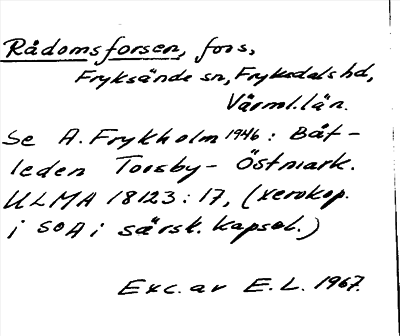 Rådomsforsen, fors,
Fryksände sn, Fryksdals hd,
Värml. län.
Se A. Frykholm 1946: Båt-
leden Torsby - Östmark.
ULMA 18123:17, (xerokop.
i SOA i särsk. kapsel.)
Exc. av E. L. 1967.